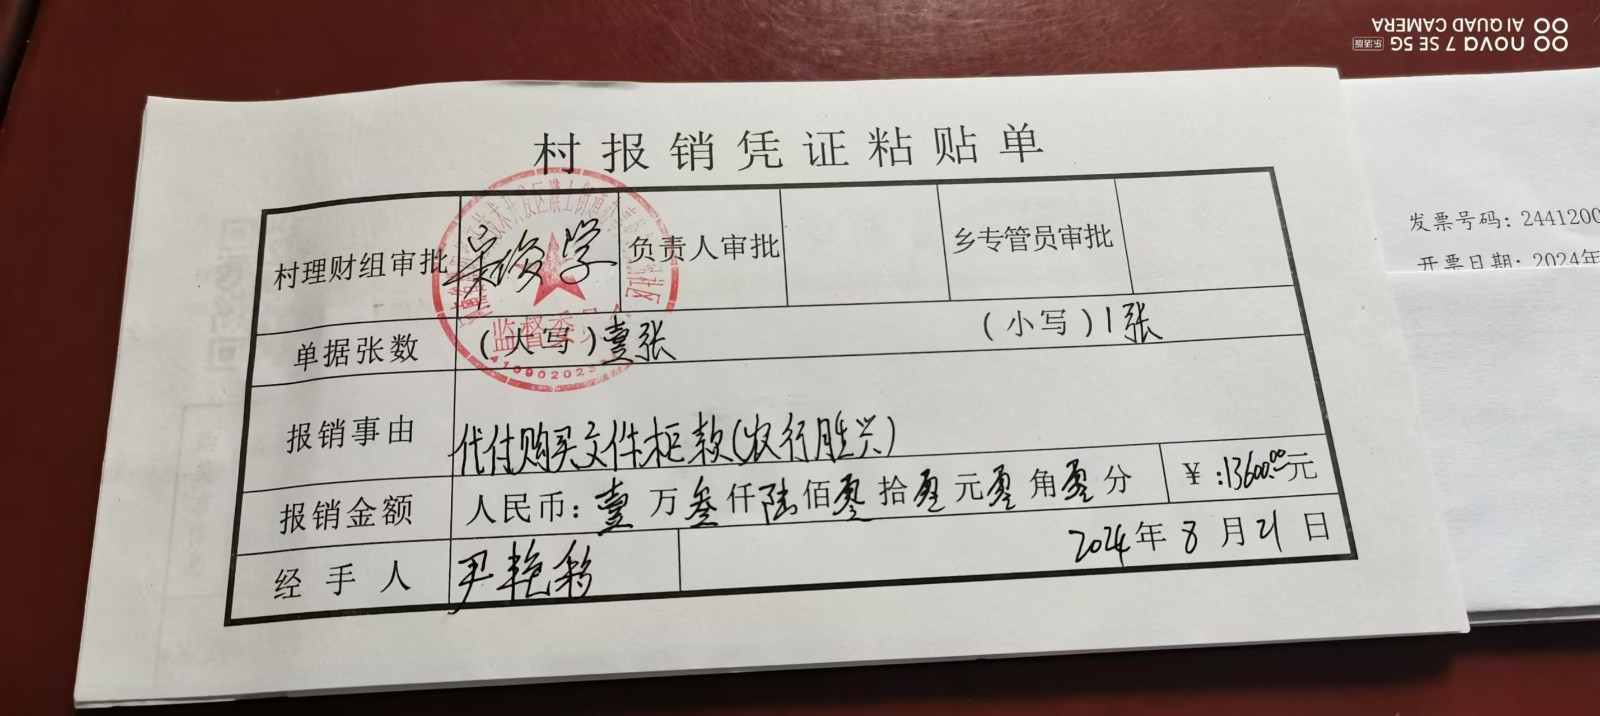 村报销凭证粘贴单
村理财组审批 负责人审批 乡专管员审批
监督委员会
单据张数 (大写)壹张 (小写)1张
报销事由 代付购买文件柜款(农行胜兴)
报销金额 人民币:壹万叁仟陆佰零拾零元零角零分 ¥:13600.00元
经手人 尹艳彩 2024年8月21日
发票号码: 2441200
开票日期: 2024年
nova 7 SE 5G 乐活版
AI QUAD CAMERA